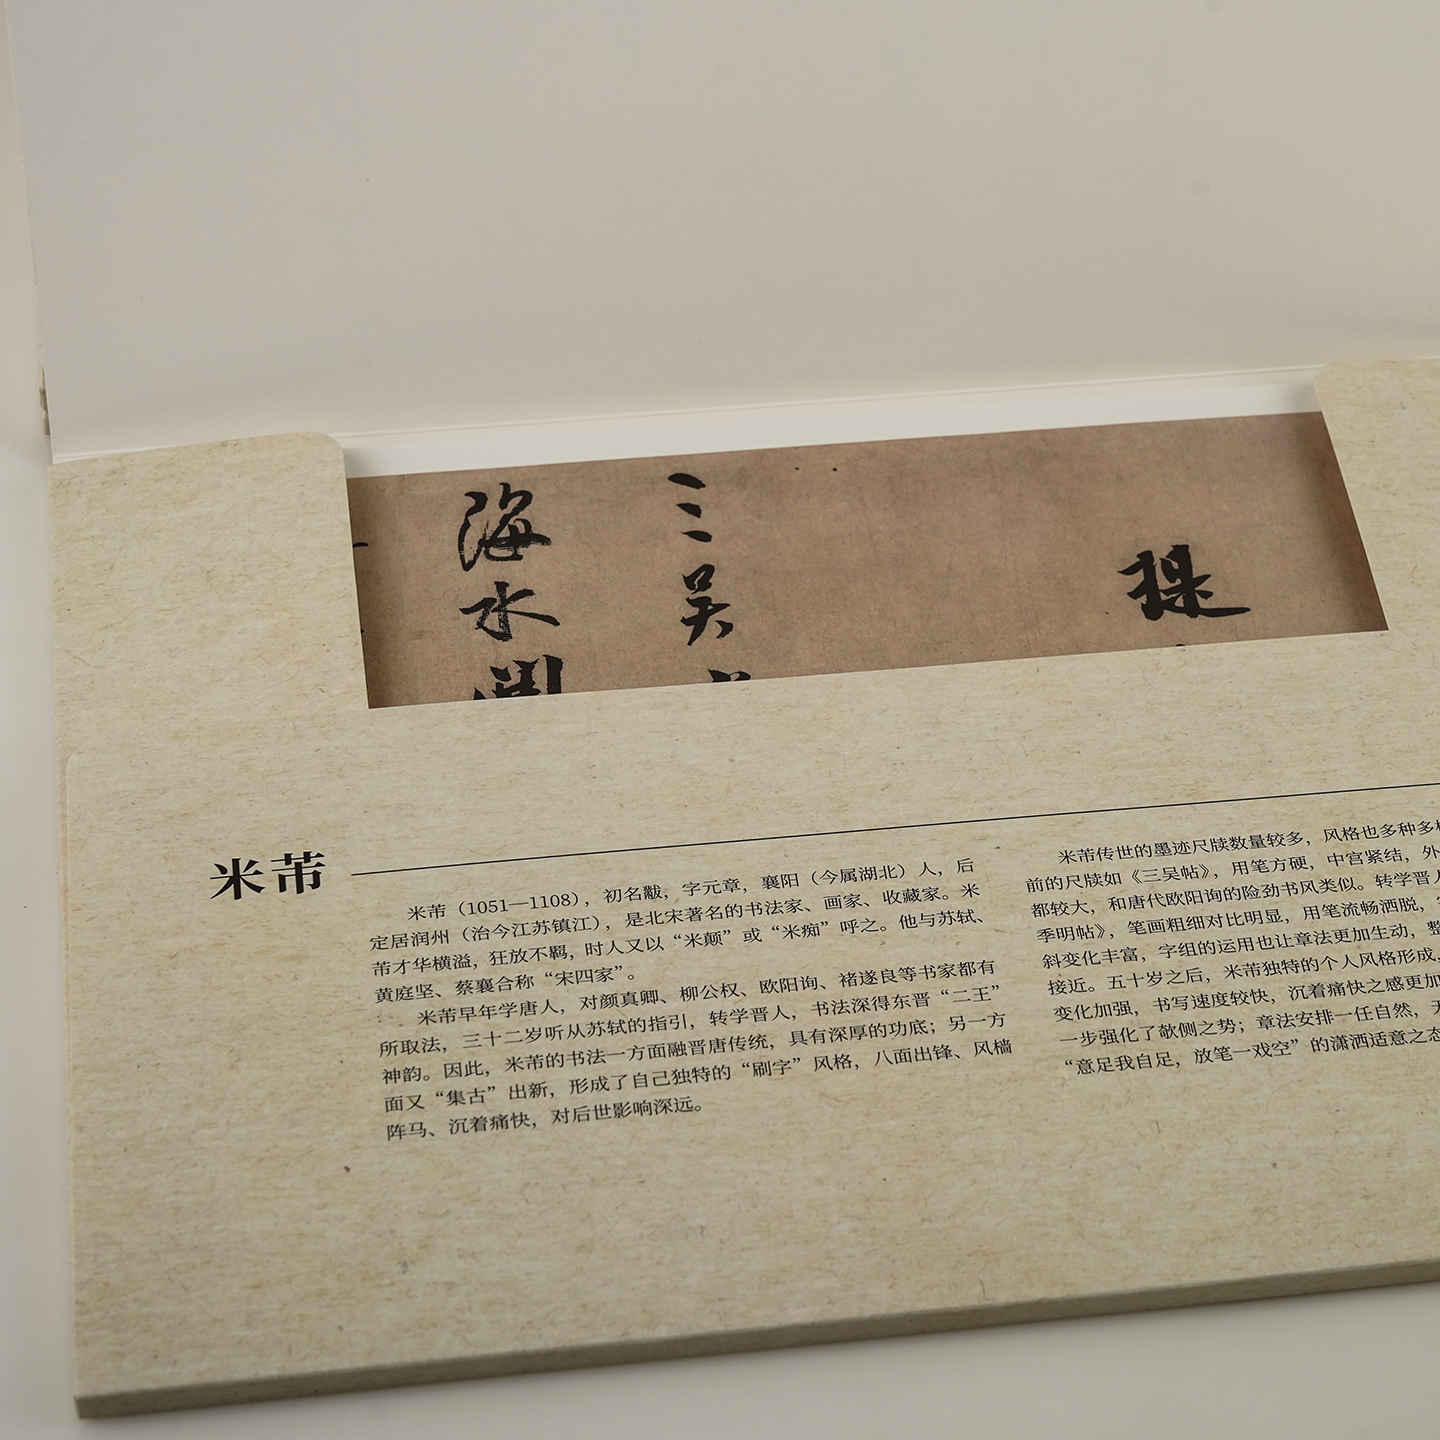 提
三吴
海水
米芾
米芾（1051—1108），初名黻，字元章，襄阳（今属湖北）人，后
定居润州（治今江苏镇江），是北宋著名的书法家、画家、收藏家。米
芾才华横溢，狂放不羁，时人又以“米颠”或“米痴”呼之。他与苏轼、
黄庭坚、蔡襄合称“宋四家”。
米芾早年学唐人，对颜真卿、柳公权、欧阳询、褚遂良等书家都有
所取法，三十二岁听从苏轼的指引，转学晋人，书法深得东晋“二王”
神韵。因此，米芾的书法一方面融晋唐传统，具有深厚的功底；另一方
面又“集古”出新，形成了自己独特的“刷字”风格，八面出锋、风樯
阵马、沉着痛快，对后世影响深远。
米芾传世的墨迹尺牍数量较多，风格也多种多
前的尺牍如《三吴帖》，用笔方硬，中宫紧结，外
都较大，和唐代欧阳询的险劲书风类似。转学晋人
季明帖》，笔画粗细对比明显，用笔流畅洒脱，
斜变化丰富，字组的运用也让章法更加生动，整
接近。五十岁之后，米芾独特的个人风格形成，
变化加强，书写速度较快，沉着痛快之感更加
一步强化了欹侧之势；章法安排一任自然，
“意足我自足，放笔一戏空”的潇洒适意之态